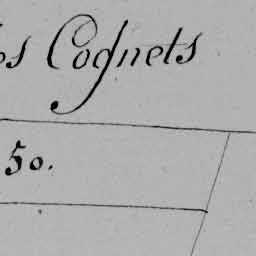 es Coqnets
50.